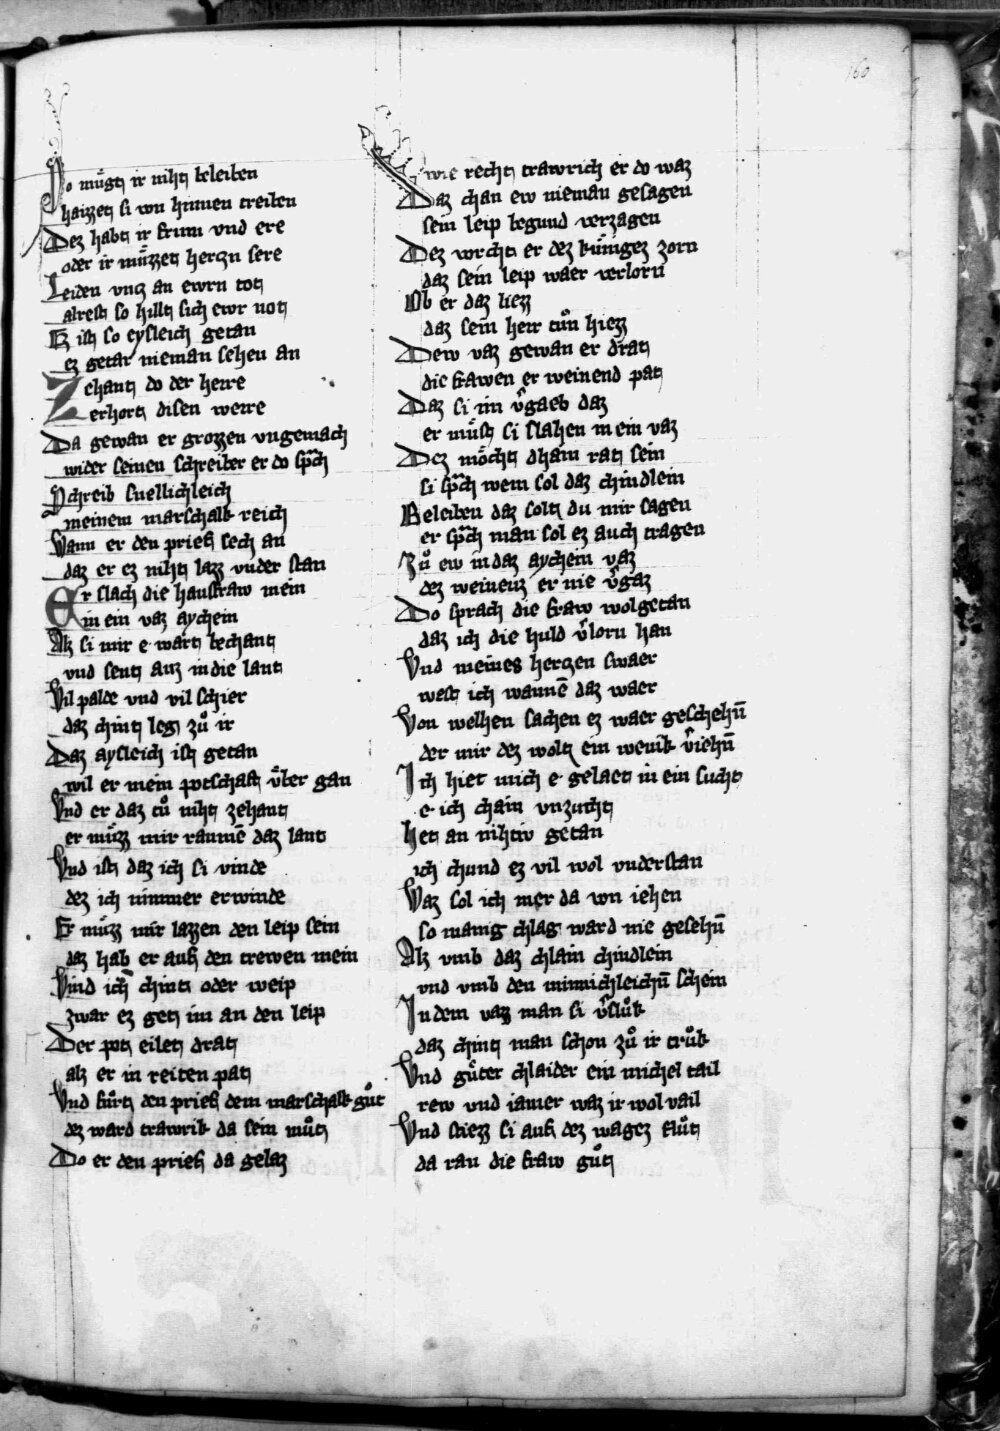 160
So mu̇gt ir niht beleiben
haizzet si von hinnen treiben
Dez habt ir frum vnd ere
oder ir mu̇zzet herczn sere
Leiden vncz an ewrn tot
alrest so hillt sich ewr not
Ez ist so eysleich getan
ez getar nieman sehen an
Zehant do der herre
erhort disen werre
Da gewan er grozzen vngemach
wider seinen schreiber er do sp̄ch
Schreib snellichleich
meinem marschalk reich
Wann er den prief sech an
daz er ez niht lazz vnder stan
Er slach die hausfraw mein
in ein vaz aychein
Alz si mir e wart bechant
vnd sent auz in die lant
Vil palde vnd vil schier
daz chint leg zuͦ ir
Daz aysleich ist getan
wil er mein potschaft v̇ber gan
Vnd er daz tuͦ niht zehant
er mu̇zz mir raumē daz lant
Vnd ist daz ich si vinde
dez ich nimmer erwinde
Er mu̇zz mir lazzen den leip sein
daz hab er auf den trewen mein
Vind ich chint oder weip
zwar ez get im an den leip
Der pot eilet drat
alz er in reiten pat
Vnd fuͦrt den prief dem marschalk guͦt
dez ward trawrik da sein muͦt
Do er den prief da gelaz
wie recht trawrich er do waz
Daz chan ew nieman gesagen
sein leip begund verzagen
Dez vorcht er dez ku̇nigez zorn
daz sein leip waer verlorn
Ob er daz liezz
daz sein herr tuͦn hiezz
Dew vaz gewan er drat
die frawen er weinend pat
Daz si im v̄gaeb daz
er mu̇st si slahen in ein vaz
Dez mo̊cht dhain rat sein
si sp̄ch wem sol daz chindlein
Beleiben daz solt du mir sagen
er sp̄ch man sol ez auch tragen
Zuͦ ew in daz aychein vaz
dez weinenz er nie v̄gaz
Do sprach die fraw wolgetan
daz ich die huld v̄lorn han
Vnd meines herczen swaer
west ich wannē daz waer
Von welhen sachen ez waer geschehn̄
der mir dez wolt ein wenik v̄iehn̄
Ich hiet mich e gelaet in ein sucht
e ich chain vnzucht
Het an nihtiv getan
ich chund ez vil wol vnderstan
Waz sol ich mer da von iehen
so manig chlag ward nie gesehn̄
Alz vmb daz chlain chindlein
vnd vmb den minnichleichn̄ schein
In dem vazz man si v̄sluͦk
daz chint man schon zuͦ ir truͦk
Vnd guͤter chlaider ein michel tail
rew vnd iamer waz ir wol vail
Vnd stiezz si auf dez wagez fluͦt
da ran die fraw guͦt